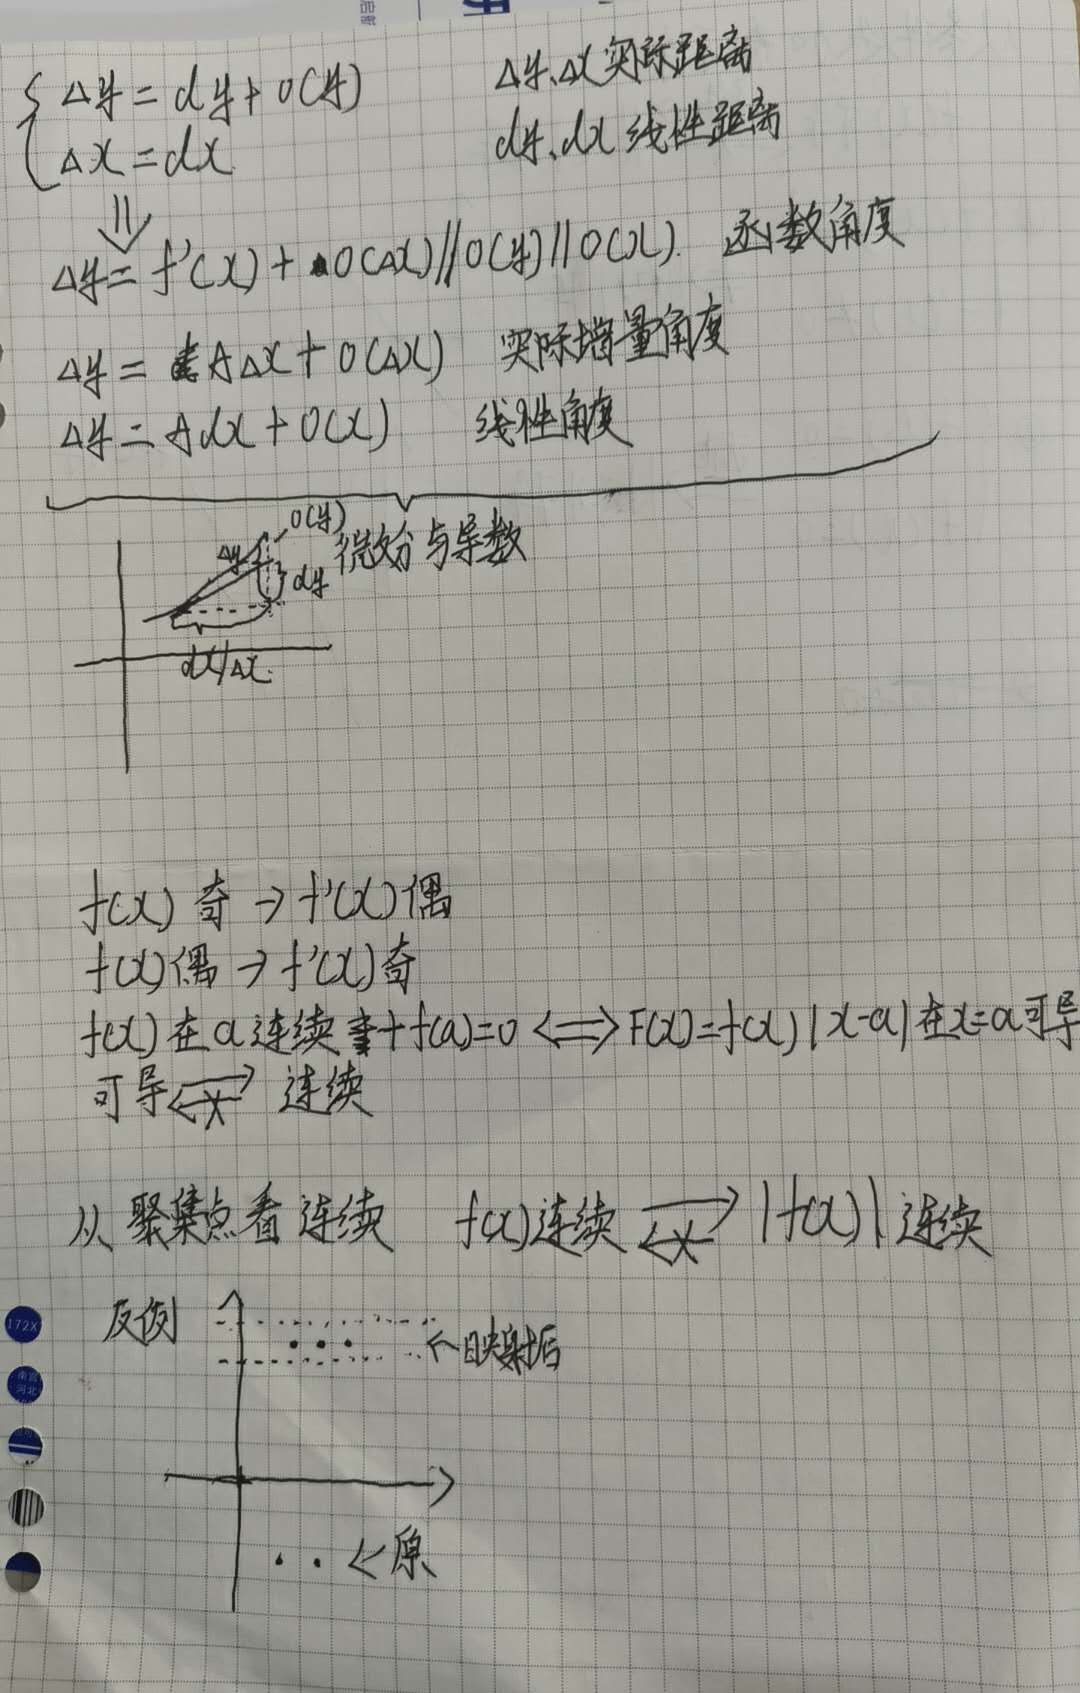 Δy = dy + o(y)  Δy、Δx 实际距离
Δx = dx  dy、dx 线性距离
⇓
Δy = f'(x) + o(Δx) // o(y) // o(x).  函数角度
Δy = AΔx + o(Δx)  实际增量角度
Δy = Adx + o(x)  线性角度
o(y)
微分与导数
Δy
dy
dx/Δx.
f(x) 奇 → f'(x) 偶
f(x) 偶 → f'(x) 奇
f(x) 在 a 连续 + f(a)=0 <=> F(x)=f(x)|x-a| 在x=a可导
可导 ⇄ 连续
x
从聚集点看连续  f(x)连续 ⇄ |f(x)| 连续
x
反例
←映射后
←原
172X
南宫
河北